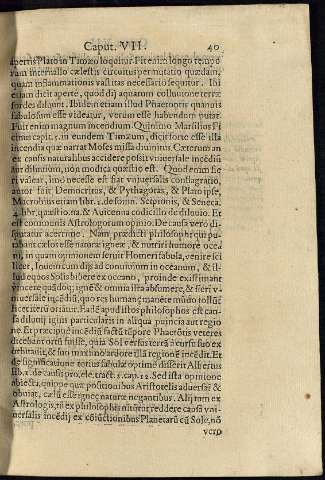 Caput. VII. 40
apertis Plato in Timæo loquitur. Fit enim longo tempo
rum interuallo cælestis circuitus permutatio quædam,
quam inflammationis vastitas necessario sequitur. Ibi
etiam dicit aperte, quod dij aquarum colluuione terræ
sordes diluunt. Ibidem etiam illud Phaetontis quamuis
fabulosum esse videatur, verum esse habendum putat.
Fuit enim magnum incendium. Quinimo Marsilius Fi
cinus capit. in eundem Timæum, dicit forte esse illa
incendia quæ narrat Moses missa diuinitus. Cæterum an
ex causis naturalibus accidere possit vniuersale incēdiū
aut diluuium, non modica quæstio est. Quod enim fie
ri valeat, imò necesse est fiat vniuersalis conflagratio,
autor fuit Democritas, & Pythagoras, & Plato ipse,
Macrobius etiam libr. 2. de somn. Scipionis, & Seneca.
4. libr. quæstio. na. & Auicenna codicillo de diluuio. Et
est communis Astrologorum opinio. De causa vero di-
sputatur acerrime. Nam prædicti philosophi qui pu-
tabant cælos esse naturæ igneæ, & nutriri humore ocea
ni, in quam opinionem seruit Homeri fabula, venire sci
licet, Iouem cum dijs ad conuiuium in oceanum, & il-
lud equos Solis bibere ex oceano, proinde existimant
vincere quādoq; ignē & omnia ista absumere, & fieri v-
niuersale incēdiū, quo res humanę manēt mūdo
licet iterū oriatur. Eadē apud istos philosophos est cau-
sa diluuij ignis particularis in aliqua puincia aut regio
ne. Et præcipue incēdij facti tēpore Phaetōtis veteres
dicebant ortū fuisse, quia Sol versus terrā a cursu suo ex
orbitauit, & suo maximo ardore illā regionē incēdit. Et
de significatione totius fabulæ optime disserit Albertus
lib. 2. de causis pro. ele. tract. 2. cap. 12. Sed ista opinione
abiecta, quippe quæ positionibus Aristotelis aduersat &
obuiat, cælū esse igneę naturæ negantibus. Alij tum ex
Astrologis, tū ex philosophis nitūtur reddere causā vni-
uersalis incēdij ex cōiūctionibus Planetarū cū Sole, nō
vero